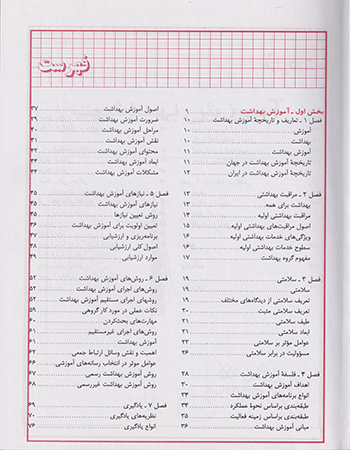 فهرست
بخش اول ـ آموزش بهداشت ۹
فصل ۱ ـ تعاریف و تاریخچهٔ آموزش بهداشت ۱۰
آموزش ۱۰
بهداشت ۱۰
آموزش بهداشت ۱۰
تاریخچهٔ آموزش بهداشت در جهان ۱۱
تاریخچهٔ آموزش بهداشت در ایران ۱۲
فصل ۲ ـ مراقبت بهداشتی ۱۳
بهداشت برای همه ۱۳
مراقبت بهداشتی اولیه ۱۴
اصول مراقبت‌های بهداشتی اولیه ۱۵
ویژگی‌های خدمات بهداشتی اولیه ۱۶
سطوح خدمات بهداشتی اولیه ۱۶
مفهوم گروه بهداشت ۱۷
فصل ۳ ـ سلامتی ۱۹
سلامتی ۱۹
تعریف سلامتی از دیدگاه‌های مختلف ۱۹
تعریف سلامتی مثبت ۲۰
طیف سلامتی ۲۱
ابعاد سلامتی ۲۱
عوامل مؤثر بر سلامتی ۲۳
مسؤولیت در برابر سلامتی ۲۶
فصل ۴ ـ فلسفهٔ آموزش بهداشت ۲۸
اهداف آموزش بهداشت ۳۰
انواع برنامه‌های آموزش بهداشت ۳۳
طبقه‌بندی براساس نحوهٔ عملکرد ۳۳
طبقه‌بندی براساس زمینه فعالیت ۳۵
مبانی آموزش بهداشت ۳۶
اصول آموزش بهداشت ۳۷
ضرورت آموزش بهداشت ۳۹
مراحل آموزش بهداشت ۴۰
نقش آموزش بهداشت ۴۱
محتوای آموزش بهداشت ۴۲
ابعاد آموزش بهداشت ۴۳
مشکلات آموزش بهداشت ۴۴
فصل ۵ ـ نیازهای آموزش بهداشت ۴۵
نیازهای آموزش بهداشت ۴۵
روش تعیین نیازها ۴۵
تعیین اولویت برای آموزش بهداشت ۴۶
برنامه‌ریزی و ارزشیابی ۴۷
اصول کلی ارزشیابی ۴۸
موارد ارزشیابی ۴۹
فصل ۶ ـ روش‌های آموزش بهداشت ۵۲
روش‌های اجرای آموزش بهداشت ۵۲
روشهای اجرای مستقیم آموزش بهداشت ۵۲
نکات عملی در مورد کار گروهی ۵۹
مهارت‌های بحث‌کردن ۶۰
روش‌های اجرای غیرمستقیم ۶۱
آموزش بهداشت ۶۱
اهمیت و نقش وسائل ارتباط جمعی ۶۲
عوامل موثر در انتخاب رسانه‌های آموزشی ۶۶
روش آموزش بهداشت رسمی ۶۷
روش آموزش بهداشت غیررسمی ۶۸
فصل ۷ ـ یادگیری ۶۹
نظریه‌های یادگیری ۷۰
انواع یادگیری ۷۶